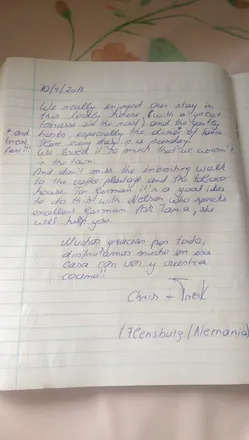 10/4/2018
We really enjoyed our stay in
this lovely home (with a great
terrasse on the roof) and the family
hosts, especially the dinner of Tania.
* and
breakfast!!
Here every day is a sunday.
We loved it so much that we weren't
in the town.
And don't miss the interesting walk
to the coffee plantage and the tobacco
house. For Germans it's a good idea
to do this with Nelson who speaks
excellent German. Ask Tania, she
will help you.
Muchas gracias por todo,
disfrutamos mucho en esa
casa con vos y vuestra
cocina!!
Chris +
(Flensburg / Alemania)